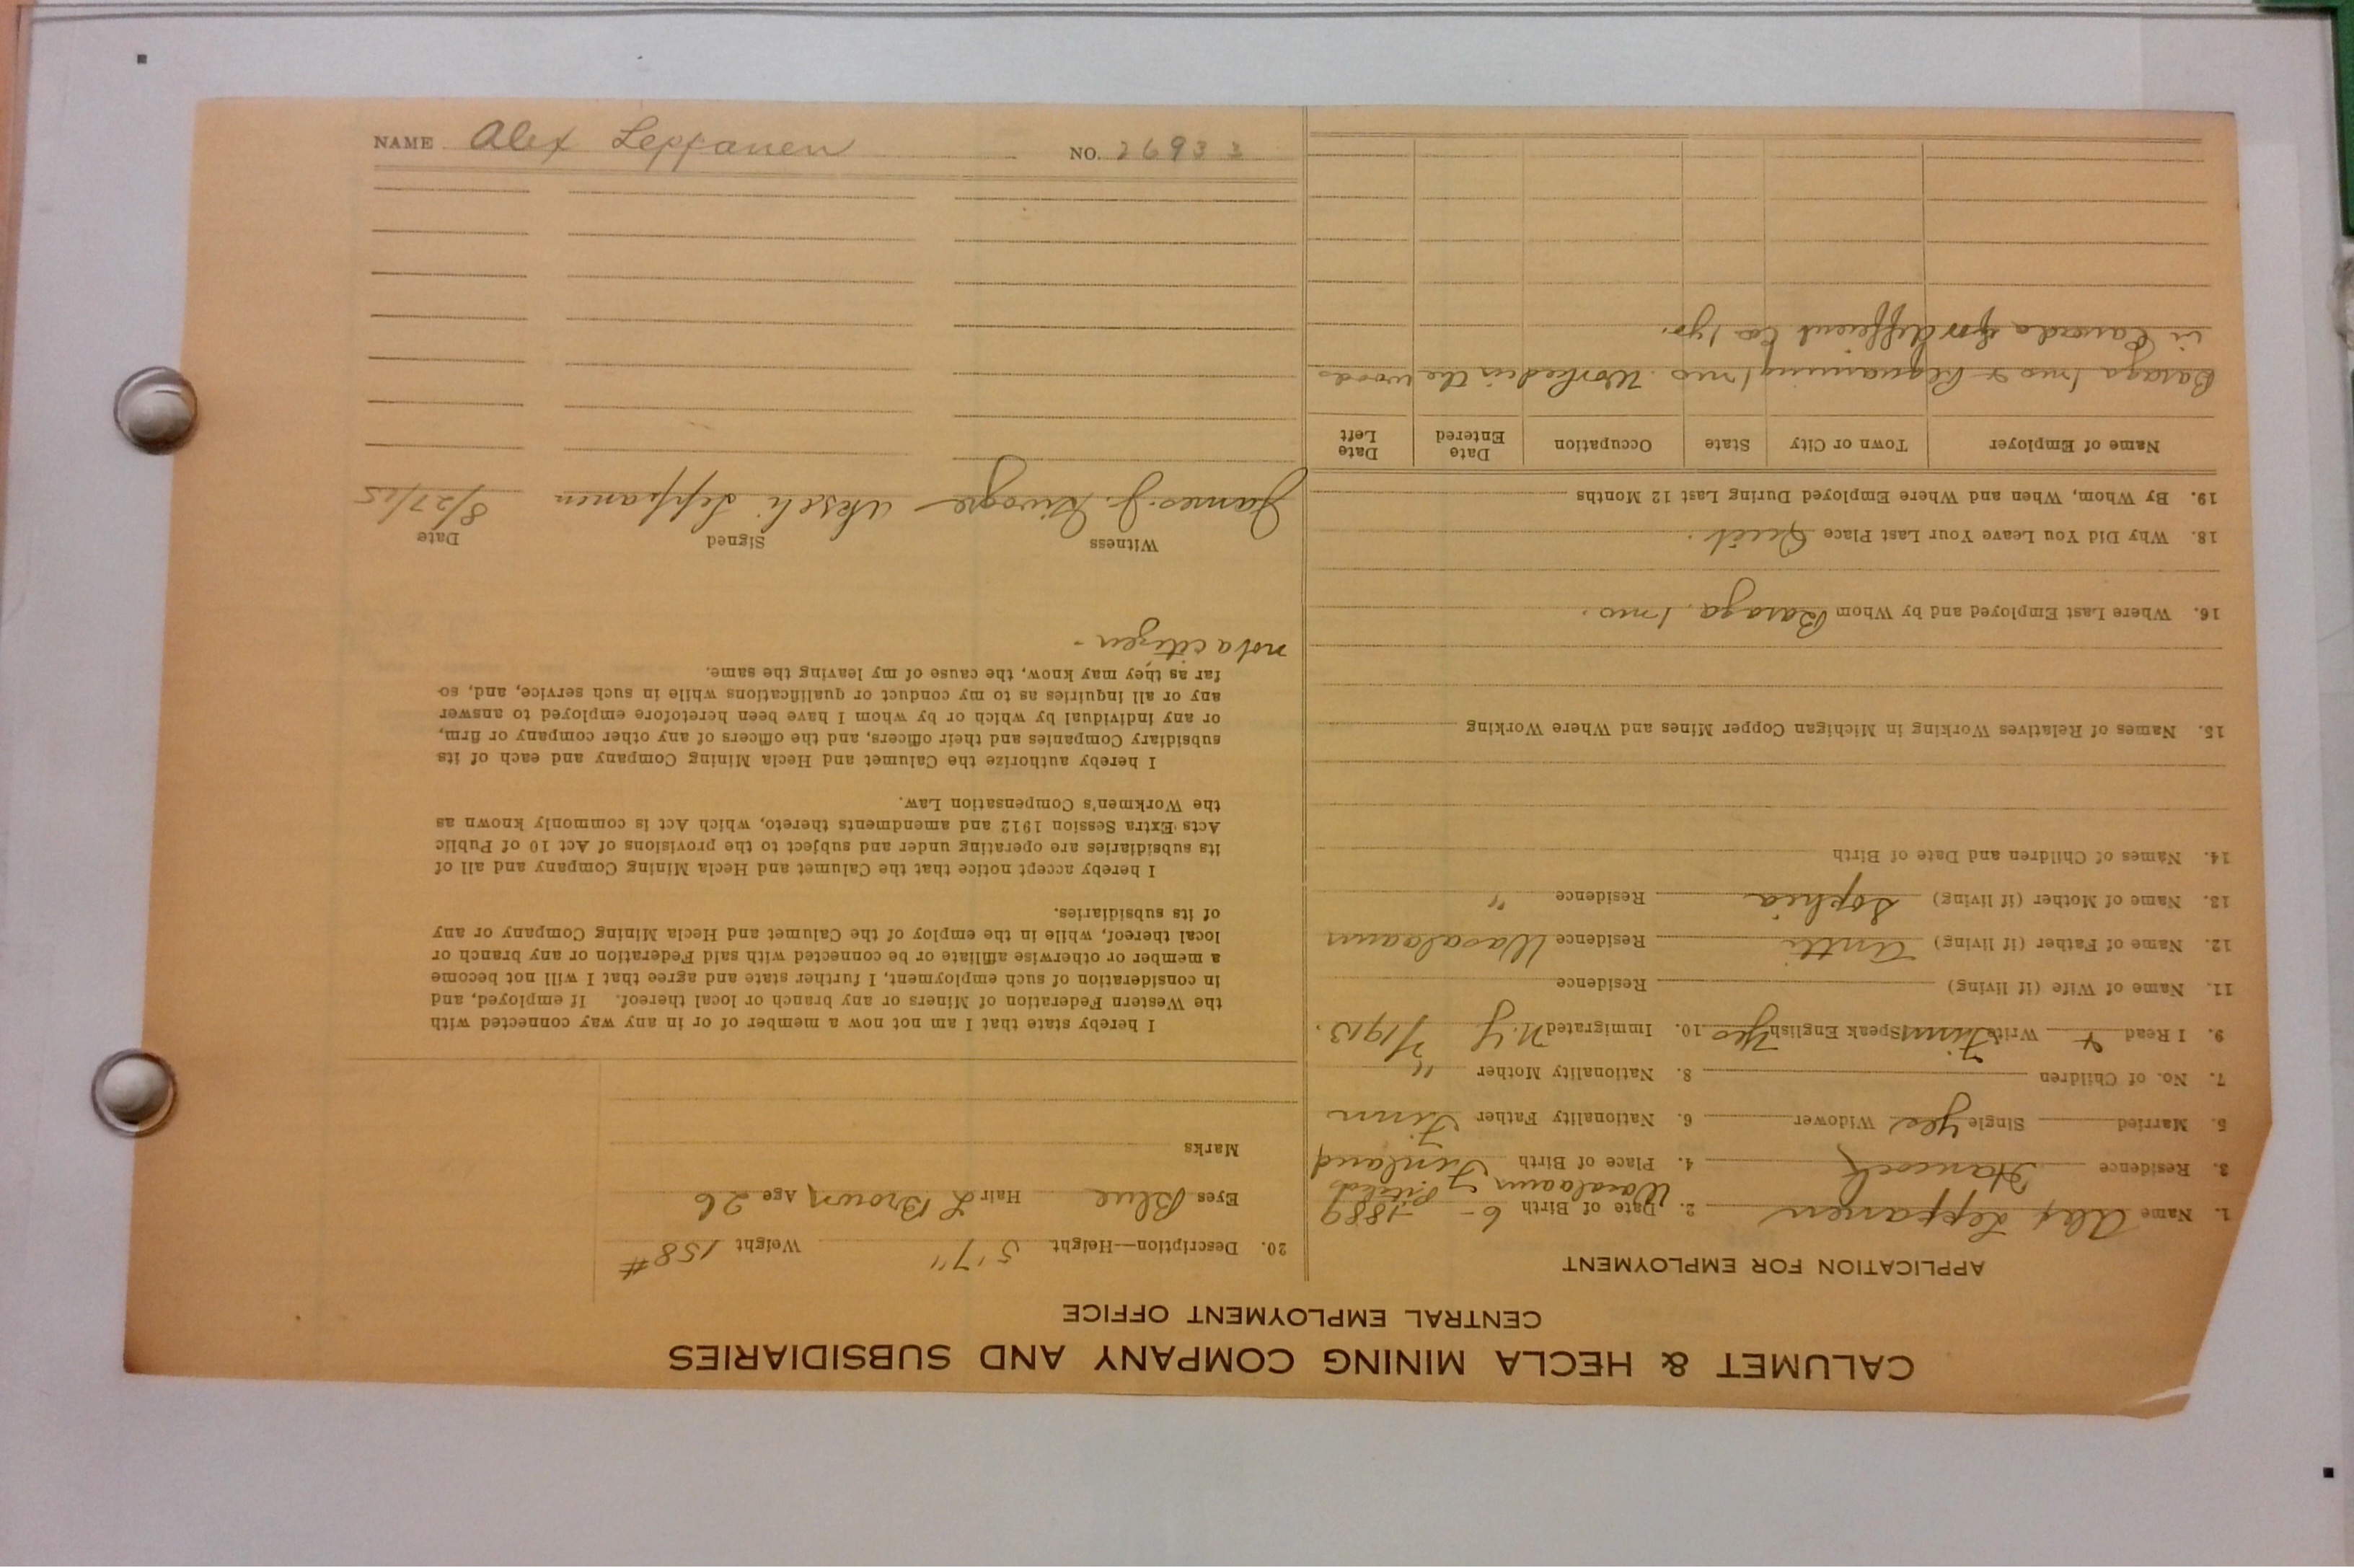 CALUMET & HECLA MINING COMPANY AND SUBSIDIARIES
CENTRAL EMPLOYMENT OFFICE
APPLICATION FOR EMPLOYMENT
1. Name Alex Leppanen 2. Date of Birth 6 - - 1889
Wasalaani Pitili
3. Residence Hancock 4. Place of Birth Finland
5. Married Single Yes Widower 6. Nationality Father Finn
7. No. of Children 8. Nationality Mother "
9. I Read + Write Finn Speak English Yes 10. Immigrated N.Y. 5/1913.
11. Name of Wife (if living) Residence
12. Name of Father (if living) Antti Residence Wasalaani
13. Name of Mother (if living) Sophia Residence "
14. Names of Children and Date of Birth
15. Names of Relatives Working in Michigan Copper Mines and Where Working
16. Where Last Employed and by Whom Baraga, 1 mo.
18. Why Did You Leave Your Last Place Quit.
19. By Whom, When and Where Employed During Last 12 Months
Name of Employer Town or City State Occupation Date Entered Date Left
Baraga 1 mo & 1 mo. Worked in the woods
in Canada for different Cos 1 yr.
20. Description—Height 5' 7" Weight 158#
Eyes Blue Hair L Brown Age 26
Marks
I hereby state that I am not now a member of or in any way connected with
the Western Federation of Miners or any branch or local thereof. If employed, and
in consideration of such employment, I further state and agree that I will not become
a member or otherwise affiliate or be connected with said Federation or any branch or
local thereof, while in the employ of the Calumet and Hecla Mining Company or any
of its subsidiaries.
I hereby accept notice that the Calumet and Hecla Mining Company and all of
its subsidiaries are operating under and subject to the provisions of Act 10 of Public
Acts Extra Session 1912 and amendments thereto, which Act is commonly known as
the Workmen's Compensation Law.
I hereby authorize the Calumet and Hecla Mining Company and each of its
subsidiary Companies and their officers, and the officers of any other company or firm,
or any individual by which or by whom I have been heretofore employed to answer
any or all inquiries as to my conduct or qualifications while in such service, and, so
far as they may know, the cause of my leaving the same.
not a citizen -
Witness Signed Date
James J. Akseli Leppanen 8/27/15
NAME Alex Leppanen NO. 26933